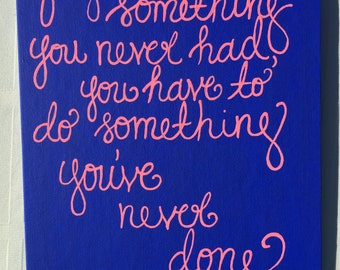 something
you never had,
you have to
do something
you've
never
done